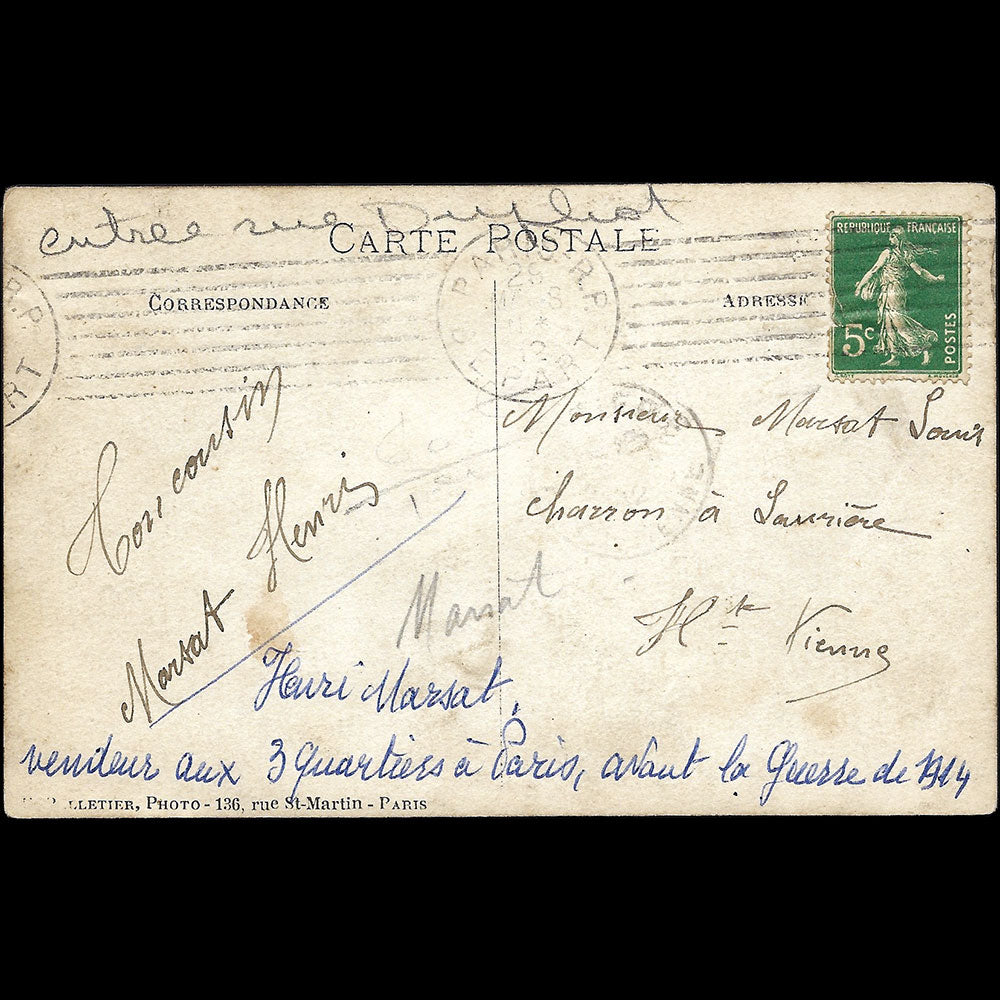 entrée rue Duphot
CARTE POSTALE
CORRESPONDANCE
ADRESSE
RÉPUBLIQUE FRANÇAISE
5c
POSTES
PARIS R.P.
DÉPART
Mon cousin
Marsat Henri
Monsieur Marsat Louis
charron à Laurière
Hte Vienne
Marsat
Henri Marsat,
vendeur aux 3 quartiers à Paris, avant la Guerre de 1914
LLETIER, PHOTO - 136, rue St-Martin - PARIS